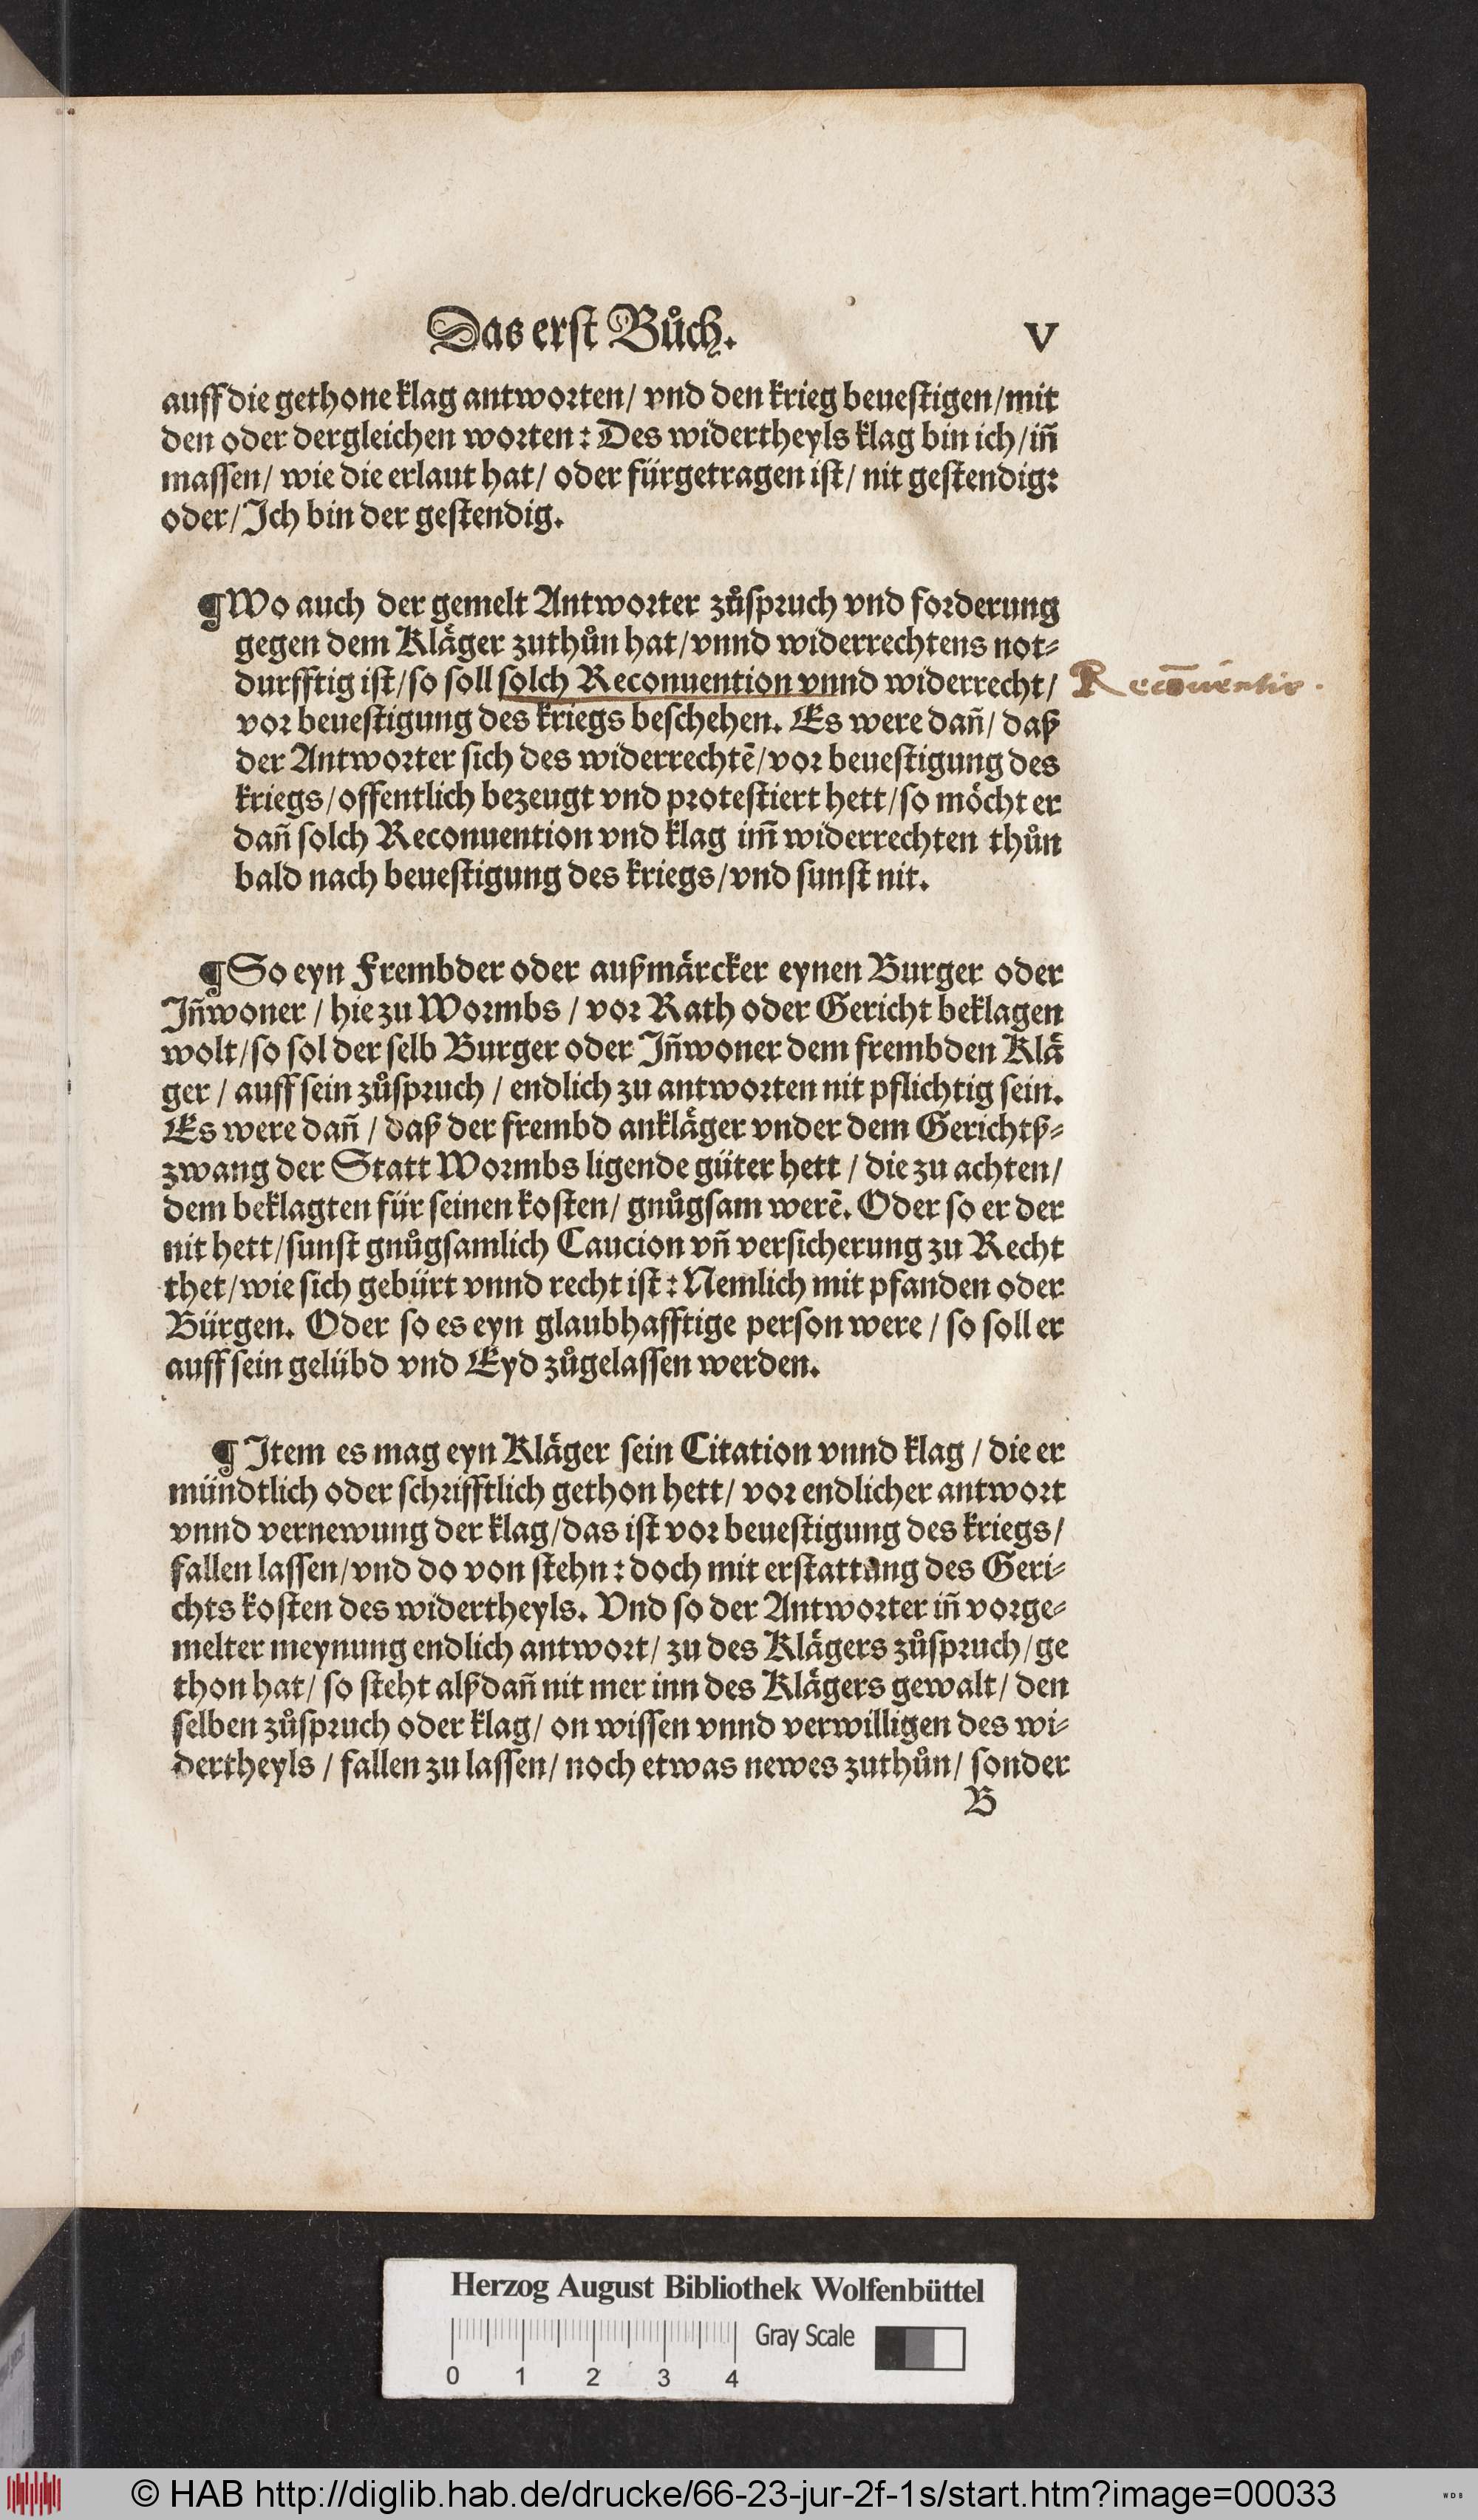 Das erst Bůch. V
auff die gethone klag antworten/ vnd den krieg beuestigen/mit
den oder dergleichen worten: Des widertheyls klag bin ich/in̄
massen/ wie die erlaut hat/ oder fürgetragen ist/ nit gestendig:
oder/Ich bin der gestendig.
¶Wo auch der gemelt Antworter zůspruch vnd forderung
gegen dem Kläger zuthůn hat/vnnd widerrechtens not⸗
durfftig ist/so soll solch Reconuention vnnd widerrecht/
Recōuentio.
vor beuestigung des kriegs beschehen. Es were dan̄/ daß
der Antworter sich des widerrechtē/vor beuestigung des
kriegs/offentlich bezeugt vnd protestiert hett/so möcht er
dan̄ solch Reconuention vnd klag im̄ widerrechten thůn
bald nach beuestigung des kriegs/vnd sunst nit.
¶So eyn Frembder oder außmärcker eynen Burger oder
In̄woner / hie zu Wormbs / vor Rath oder Gericht beklagen
wolt/so sol der selb Burger oder In̄woner dem frembden Klä
ger / auff sein zůspruch / endlich zu antworten nit pflichtig sein.
Es were dan̄ / daß der frembd ankläger vnder dem Gerichtß⸗
zwang der Statt Wormbs ligende güter hett / die zu achten/
dem beklagten für seinen kosten/ gnůgsam werē. Oder so er der
nit hett/sunst gnůgsamlich Caucion vn̄ versicherung zu Recht
thet/wie sich gebürt vnnd recht ist: Nemlich mit pfanden oder
Bürgen. Oder so es eyn glaubhafftige person were / so soll er
auff sein gelübd vnd Eyd zůgelassen werden.
¶ Item es mag eyn Kläger sein Citation vnnd klag / die er
mündtlich oder schrifftlich gethon hett/ vor endlicher antwort
vnnd vernewung der klag/das ist vor beuestigung des kriegs/
fallen lassen/vnd do von stehn: doch mit erstattung des Geri⸗
chts kosten des widertheyls. Vnd so der Antworter in̄ vorge⸗
melter meynung endlich antwort/ zu des Klägers zůspruch/ge
thon hat/ so steht alßdan̄ nit mer inn des Klägers gewalt/ den
selben zůspruch oder klag/ on wissen vnnd verwilligen des wi⸗
dertheyls / fallen zu lassen/ noch etwas newes zuthůn/ sonder
B
Herzog August Bibliothek Wolfenbüttel
Gray Scale
0 1 2 3 4
© HAB http://diglib.hab.de/drucke/66-23-jur-2f-1s/start.htm?image=00033
WDB